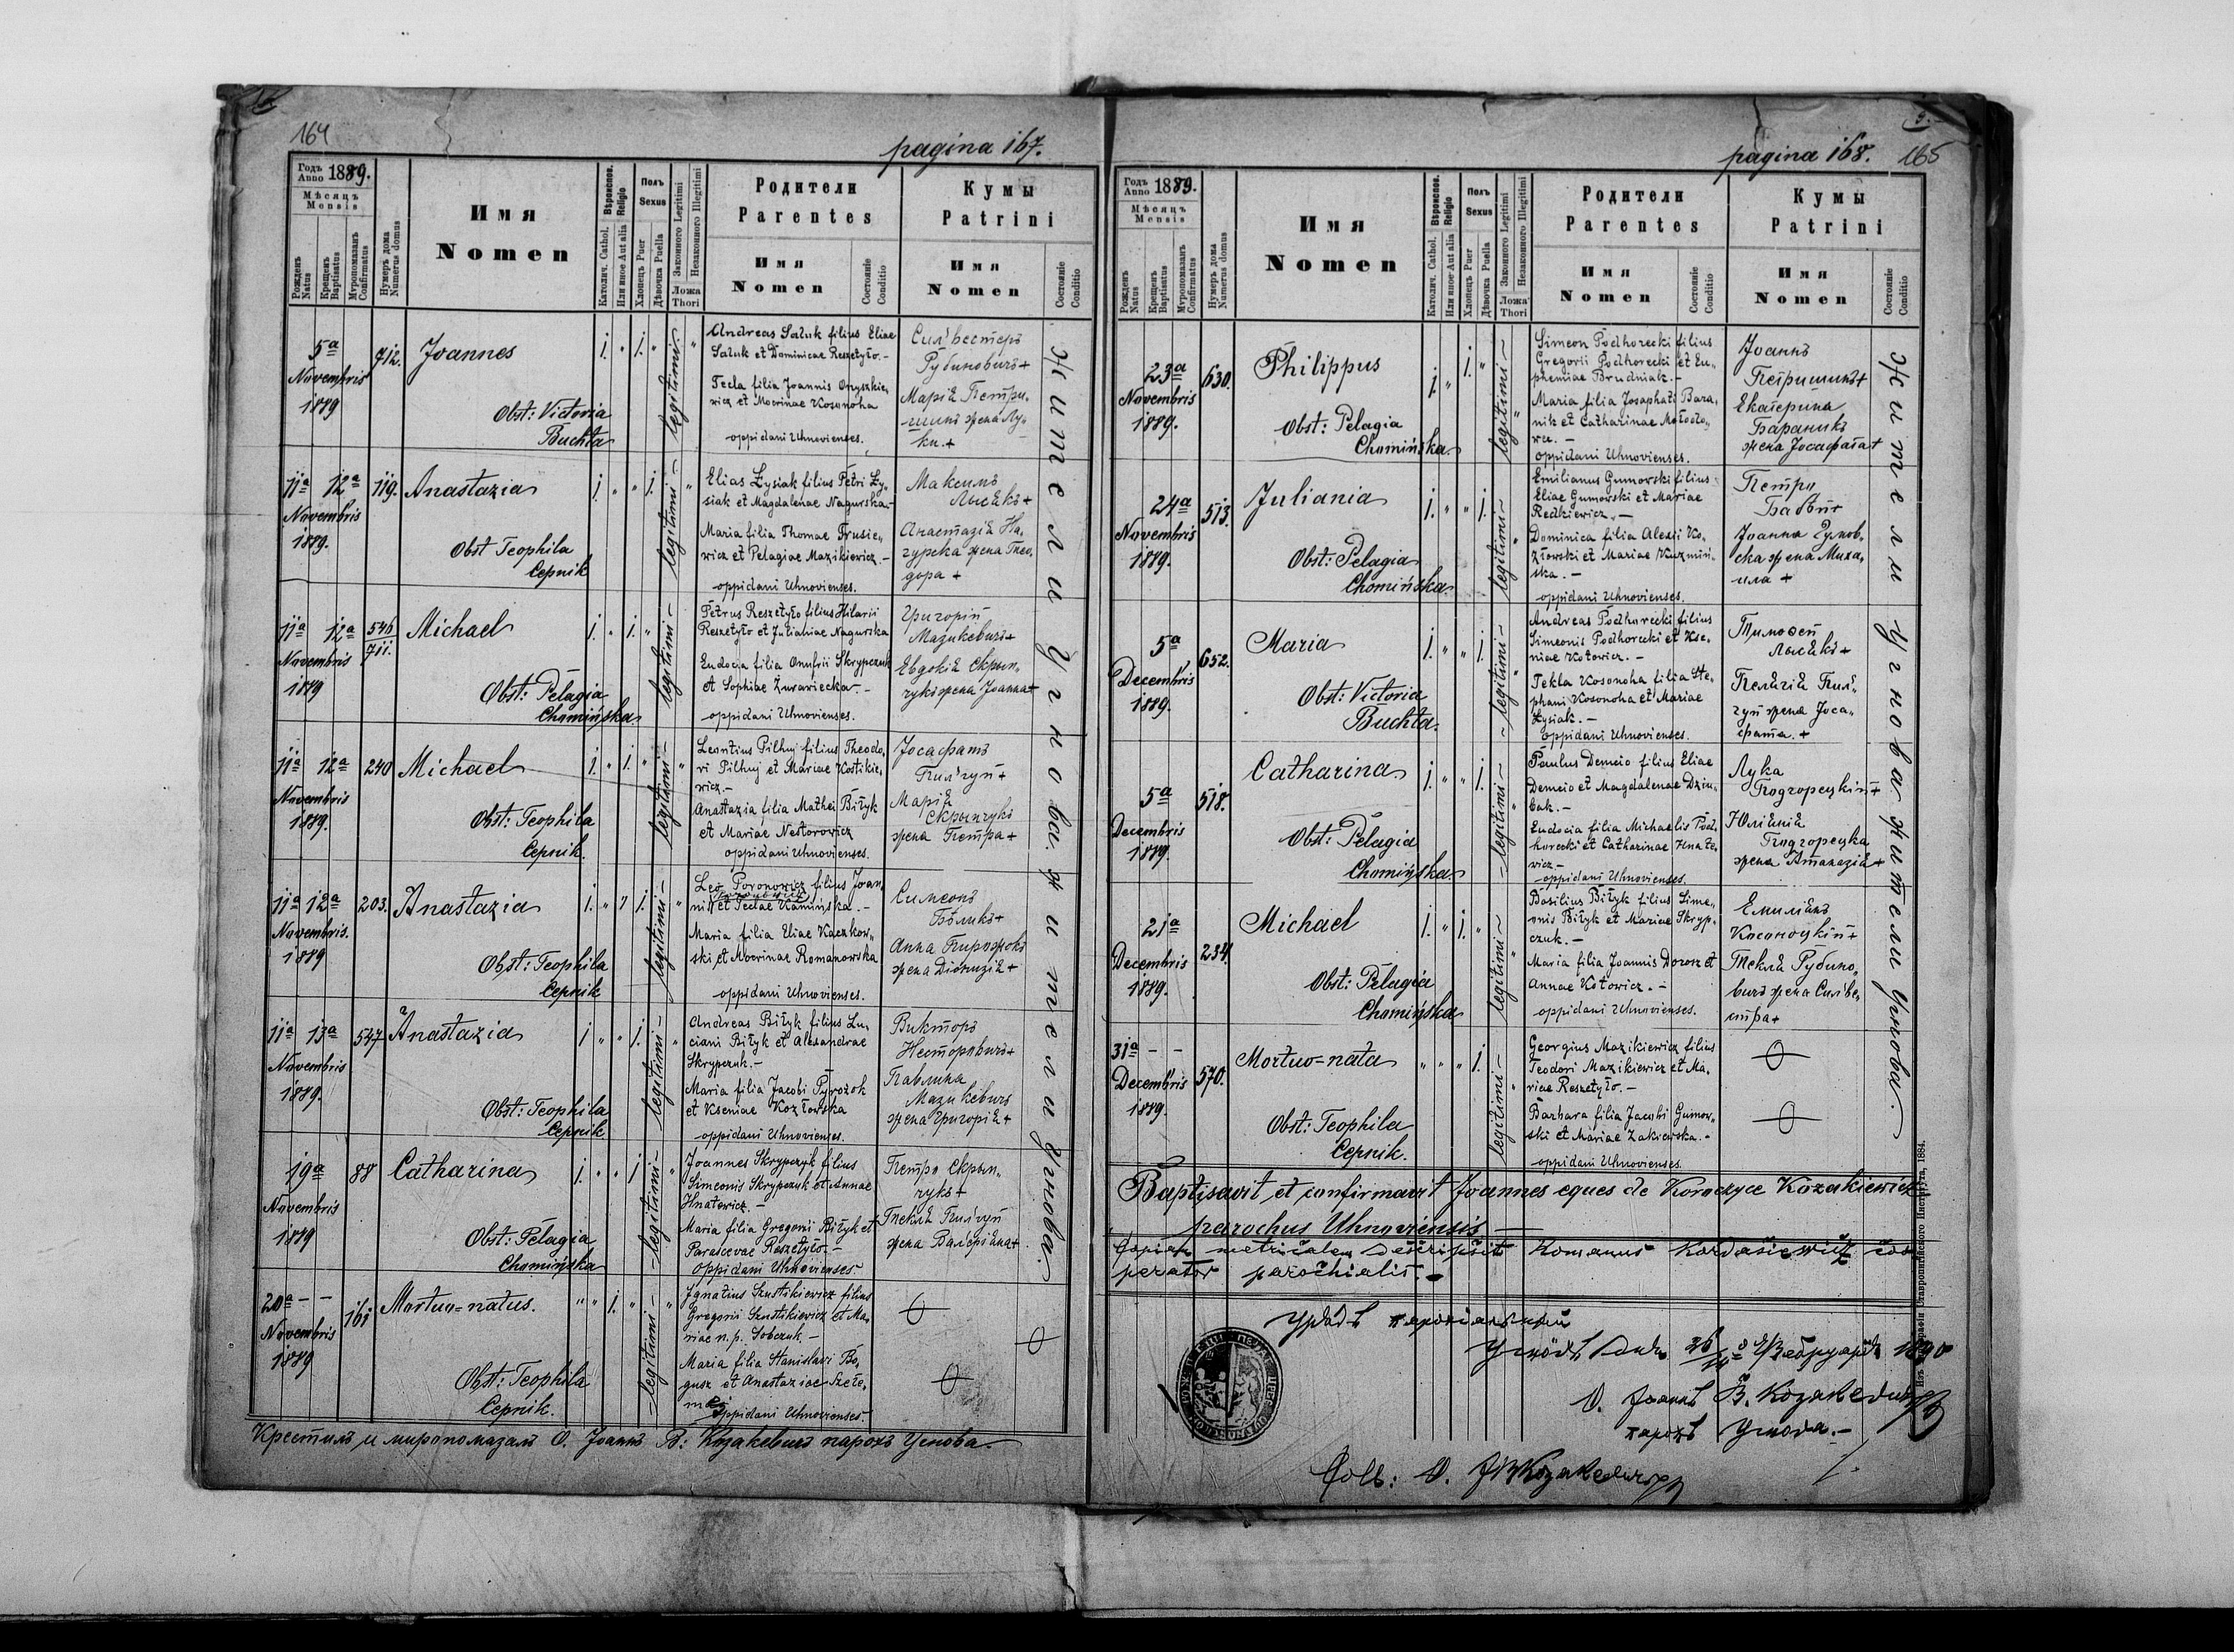 164
pagina 167.
Годъ Anno 1889.
Мѣсяцъ Mensis
Рожденъ Natus
Крещенъ Baptisatus
Мѵропомазанъ Confirmatus
Нумеръ дома Numerus domus
Имя
Nomen
Вѣроиспов. Religio
Католич. Cathol.
Или иное Aut alia
Полъ Sexus
Хлопецъ Puer
Дѣвочка Puella
Законного Legitimi
Незаконного Illegitimi
Ложа Thori
Родители
Parentes
Имя
Nomen
Состояніе Conditio
Кумы
Patrini
Имя
Nomen
Состояніе Conditio
5a
Novembris
1889
712.
Joannes
Obst: Victoria
Buchta
1. " 1. "
legitimi
Andreas Saluk filius Eliae
Saluk et Dominicae Reszetyło. –
Tecla filia Joannis Onyszkie„
wicz et Mocrinae Kosonoha
oppidani Uhnovienses.
Сильвестеръ
Рубиновичъ +
Марія Петри„
шинъ жена Лу„
ки. +
11a 12a
Novembris
1889.
119.
Anastazia
Obst Teophila
Cepnik
1. " " 1.
legitimi
Elias Łysiak filius Petri Ły„
siak et Magdalenae Nagurska –
Maria filia Thomae Frusie„
wicz et Pelagiae Mazikiewicz. –
oppidani Uhnovienses.
Максимъ
Лысякъ +
Анастазія На„
гурска жена Тео„
дора +
11a 12a
Novembris
1889
546
711.
Michael
Obst: Pelagia
Chomińska
1. " 1. "
legitimi
Petrus Reszetyło filius Hilarii
Reszetyło et Julianiae Nagurska
Eudocia filia Onufrii Skrypczuk
et Sophiae Żurawiecka. –
oppidani Uhnovienses.
Григорій
Мазикевичъ +
Евдокія Скрып„
чукъ жена Іоанна +
11a 12a
Novembris
1889.
240
Michael
Obst: Teophila
Cepnik.
1. " 1. "
legitimi
Leontius Pilhuj filius Theodo„
ri Pilhuj et Mariae Kostikie„
wicz. –
Anastazia filia Mathei Biłyk
et Mariae Nestorowicz
oppidani Uhnovienses.
Іосафатъ
Пильгуй +
Марія
Скрыпчукъ
жена Петра +
11a 12a
Novembris.
1889
203.
Anastazia
Obst: Teophila
Cepnik
legitimi
Leo Poronowicz filius Joan„
nis et Teclae Kamińska. –
Maria filia Eliae Kaczkow„
ski et Mocrinae Romanowska
oppidani Uhnovienses.
Симеонъ
Бѣликъ +
Анна Пирожокъ
жена Діонизія +
11a 13a
Novembris
1889.
547
Anastazia
Obst: Teophila
Cepnik
1 " " 1.
legitimi
Andreas Biłyk filius Lu„
ciani Biłyk et Alexandrae
Skrypczuk. –
Maria filia Jacobi Pyrożok
et Kseniae Kozłowska
oppidani Uhnovienses.
Викторъ
Несторовичъ +
Павлина
Мазикевичъ
жена Григорія +
19a
Novembris
1889
88
Catharina
Obst: Pelagia
Chomińska
1. " " 1
legitimi
Joannes Skrypczuk filius
Simeonis Skrypczuk et Annae
Hnatowicz. –
Maria filia Gregorii Biłyk et
Parascevae Reszetyło. –
oppidani Uhnovienses.
Петро Скрып„
чукъ +
Текля Пильгуй
жена Валеріяна +
20a – –
Novembris
1889
161
Mortuo=natus.
Obst: Teophila
Cepnik.
" " 1. "
legitimi
Ignatius Szustikiewicz filius
Gregorii Szustikiewicz et Ma„
riae n. p. Sobczuk. –
Maria filia Stanislavi Bo„
gusz et Anastaziae Szełe„
oppidani Uhnovienses.
Жители Угнова. жители Угнова.
Крестилъ и миропомазалъ О. Іоаннъ В: Козакевичъ парохъ Угнова. –
3.
pagina 168. 165
Годъ Anno 1889.
Мѣсяцъ Mensis
Рожденъ Natus
Крещенъ Baptisatus
Мѵропомазанъ Confirmatus
Нумеръ дома Numerus domus
Имя
Nomen
Вѣроиспов. Religio
Католич. Cathol.
Или иное Aut alia
Полъ Sexus
Хлопецъ Puer
Дѣвочка Puella
Законного Legitimi
Незаконного Illegitimi
Ложа Thori
Родители
Parentes
Имя
Nomen
Состояніе Conditio
Кумы
Patrini
Имя
Nomen
Состояніе Conditio
23a
Novembris
1889.
630.
Philippus
Obst: Pelagia
Chomińska
1. " 1. "
legitimi
Simeon Podhorecki filius
Gregorii Podhorecki et Eu„
phemiae Brudniak. –
Maria filia Josaphati Bara„
nik et Catharinae Mołodo„
wec. –
oppidani Uhnovienses.
Іоаннъ
Петришинъ +
Екатерина
Бараникъ
жена Іосафата +
24a
Novembris
1889.
513.
Juliania
Obst: Pelagia
Chomińska
1. " " 1.
legitimi
Emilianus Gumowski filius
Eliae Gumowski et Mariae
Redkiewicz. –
Dominica filia Alexii Ko„
złowski et Mariae Kuzmiń„
ska. –
oppidani Uhnovienses.
Петро
Бабій +
Іоанна Гумов„
ска жена Миха„
ила +
5a
Decembris
1889.
652.
Maria
Obst: Victoria
Buchta.
1. " " 1.
legitimi
Andreas Podhorecki filius
Simeonis Podhorecki et Kse„
niae Kotowicz. –
Tekla Kosonoha filia Ste„
phani Kosonoha et Mariae
Łysiak. –
oppidani Uhnovienses.
Тимофей
Лысякъ +
Пелягія Пиль„
гуй жена Іоса„
фата. +
5a
Decembris
1889.
518.
Catharina
Obst: Pelagia
Chomińska
1. " " 1.
legitimi
Paulus Demcio filius Eliae
Demcio et Magdalenae Dziu„
bak. –
Eudocia filia Michaelis Pod„
horecki et Catharinae Hnate„
wicz –
oppidani Uhnovienses.
Лука
Подгорецкій +
Юліянія
Подгорецка
жена Атаназія +
21a
Decembris
1889.
234.
Michael
Obst: Pelagia
Chomińska
1. " 1. "
legitimi
Basilius Biłyk filius Sime„
onis Biłyk et Mariae Skryp„
czuk. –
Maria filia Joannis Dorosz et
Annae Kotowicz. –
oppidani Uhnovienses.
Емиліянъ
Косоноцкій +
Текля Рубино„
вичъ жена Сильве„
стра +
31a – –
Decembris
1889.
570.
Mortuo=nata
Obst: Teophila
Cepnik.
" " " 1.
legitimi
Georgius Mazikiewicz filius
Teodori Mazikiewicz et Ma„
riae Reszetyło. –
Barbara filia Jacobi Gumow„
ski et Mariae Zakiewska. –
oppidani Uhnovienses.
Жители Угнова жители Угнова.
Baptisavit et confirmavit Joannes eques de Koroczyce Kozakiewicz
parochus Uhnoviensis
Copiam metricalem descripsit Romanus Kordasiewicz coo
perator parochialis. –
Урядъ парохіальный
Угновъ дня 26/14 Фебруарія 1890
О. Іоаннъ В. Козакевичъ
парохъ Угнова. –
Coll: О. Козакевичъ
Изъ типографіи Ставропигійского Института, 1884.